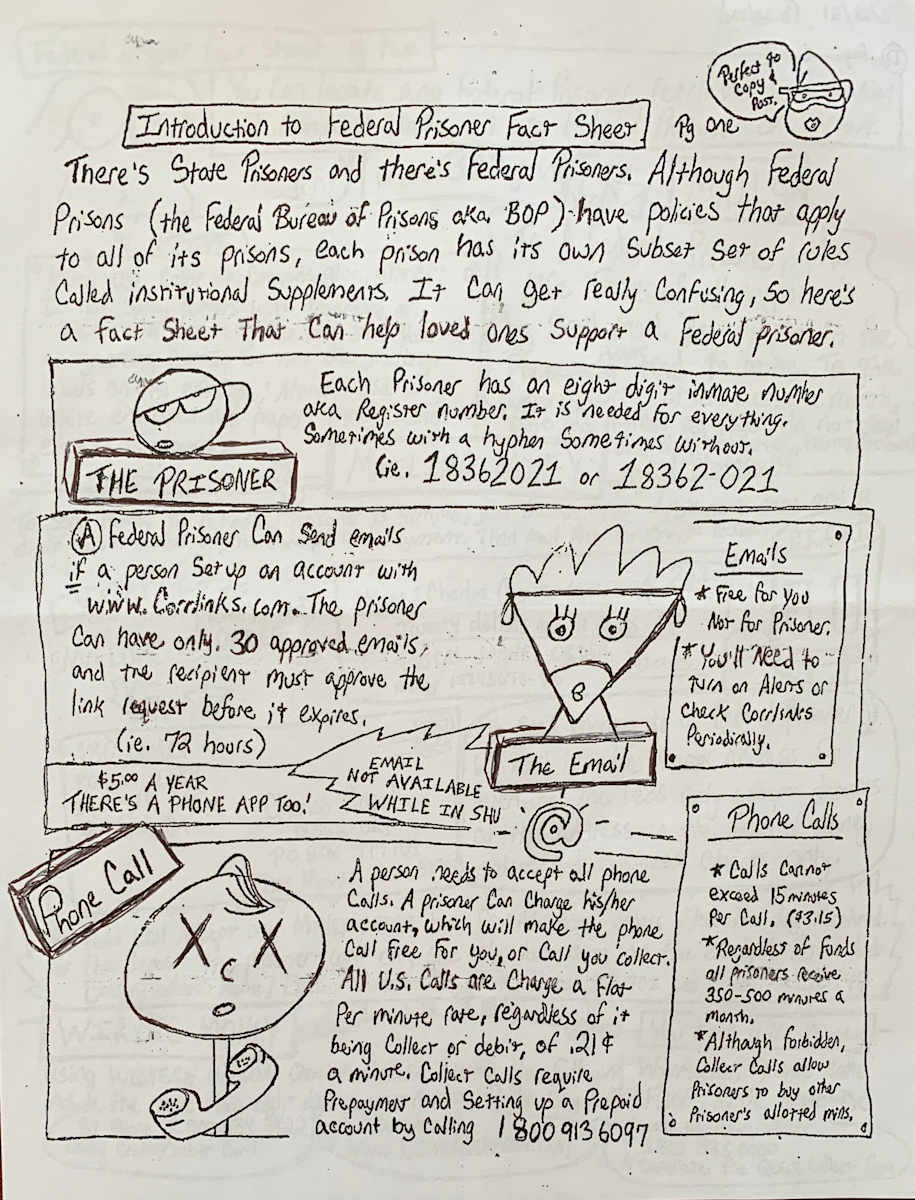 Perfect to
Copy &
Post.
Introduction to Federal Prisoner Fact Sheet
Pg One
There's State Prisoners and there's Federal Prisoners. Although Federal
Prisons (the Federal Bureau of Prisons aka. BOP) have policies that apply
to all of its prisons, each prison has its own Subset Set of rules
Called institutional Supplements. It Can get really Confusing, So here's
a fact Sheet That Can help loved ones Support a Federal prisoner.
THE PRISONER
Each Prisoner has an eight digit inmate number
aka Register number. It is needed for everything.
Sometimes with a hyphen Sometimes without.
(ie. 18362021 or 18362-021
A Federal Prisoner Can Send emails
if a person Set up an account with
www.Corrlinks.com. The prisoner
Can have only. 30 approved emails,
and the recipient must approve the
link request before it expires.
(ie. 72 hours)
$5.00 A YEAR
THERE'S A PHONE APP TOO!
EMAIL
NOT AVAILABLE
WHILE IN SHU
The Email
@
Emails
* Free For You
Not For Prisoner.
* You'll Need to
turn on Alerts or
Check Corrlinks
Periodically.
Phone Call
A person needs to accept all phone
Calls. A prisoner Can Charge his/her
account, which will make the phone
Call Free For you, or Call you Collect.
All U.S. Calls are Charge a flat
Per minute rate, regardless of it
being Collect or debit, of .21¢
a minute. Collect Calls require
Prepayment and Setting up a Prepaid
account by Calling 1 800 913 6097
Phone Calls
* Calls Cannot
exceed 15 minutes
Per Call. ($3.15)
* Regardless of Funds
all prisoners receive
350-500 minutes a
month.
* Although forbidden,
Collect Calls allow
Prisoners to buy other
Prisoner's allotted mins.